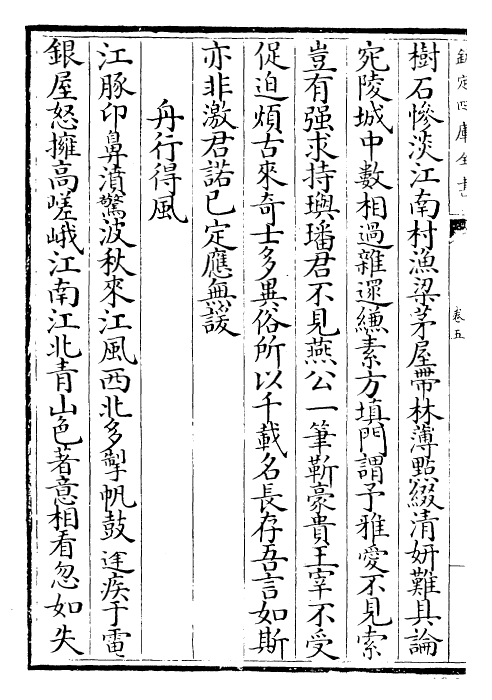 欽定四庫全書
卷五
樹石慘淡江南村漁梁茅屋帶林薄點綴清妍難具論
宛陵城中數相過雜遝縑素方填門謂予雅愛不見索
豈有强求持璵璠君不見燕公一筆靳豪貴王宰不受
促迫煩古來奇士多異俗所以千載名長存吾言如斯
亦非激君諾已定應無諼
舟行得風
江豚印鼻濆驚波秋來江風西北多掣帆鼓𨓏疾于雷
銀屋怒擁高嵯峨江南江北青山色著意相看忽如失